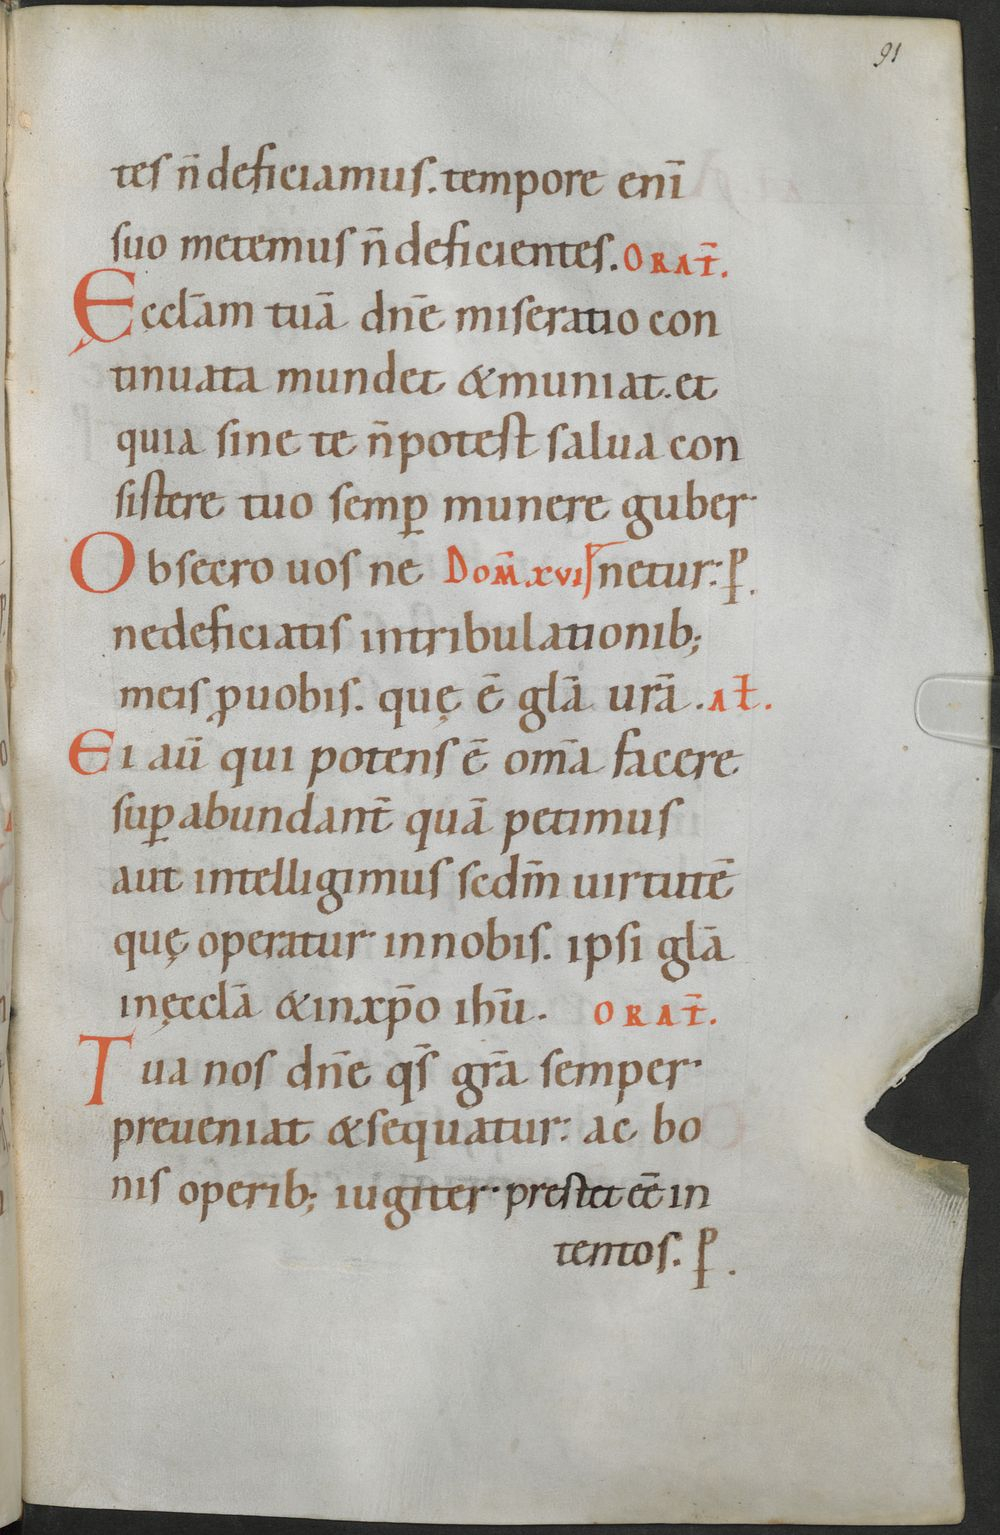 91
tes n̄ deficiamus. tempore enī
suo metemus n̄ deficientes. ORAT̄.
Eccl̄am tuā dn̄e miseratio con
tinuata mundet & muniat. et
quia sine te n̄ potest salua con
sistere tuo semꝑ munere guber
Obsecro uos ne Dom̄ xvi netur: P̱.
nedeficiatis intribulationib;
meis ꝓuobis. quę ē gl̄a ur̄a. AŁ.
Ei aū qui potens ē om̄a facere
suꝑabundant̄ quā petimus
aut intelligimus scdm̄ uirtutē
quę operatur innobis. ipsi gl̄a
inęccl̄a & inxp̄o ihū. ORAT̄.
Tua nos dn̄e qs̄ gr̄a semper
preueniat & sequatur: ac bo
nis operib; iugiter prestet eē in
tentos. P̱.